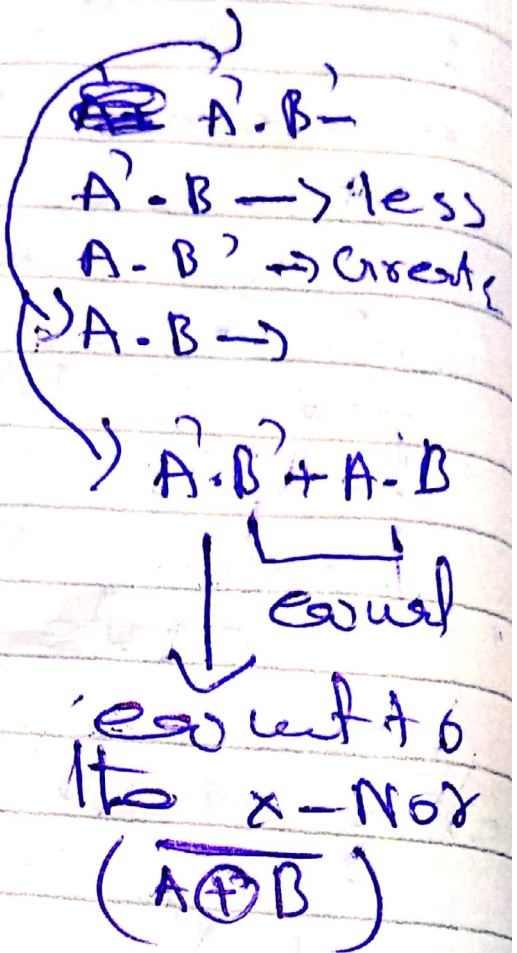 A'.B'-
A'.B → less
A.B' → Greate
A.B →
A'.B'+A.B
equal
equal to
the X-Nor
(\overline{A⊕B})